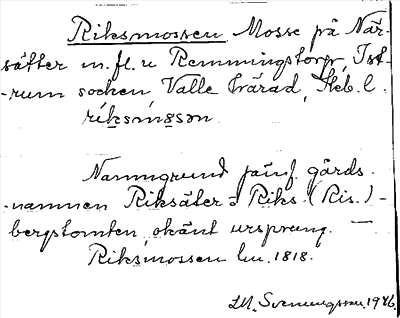 Riksmossen, Mosse på När-
säter m.fl. u Remmingstorp, Ist-
-rum socken, Valle härad, Skb. l.
ríksmo̱sən.
Namngrund jämf. gårds-
-namnen Riksäter o Riks-(Ris.)-
bergstomten, okänt ursprung. —
Riksmossen lm. 1818.
LM. Svenungsson. 1946.